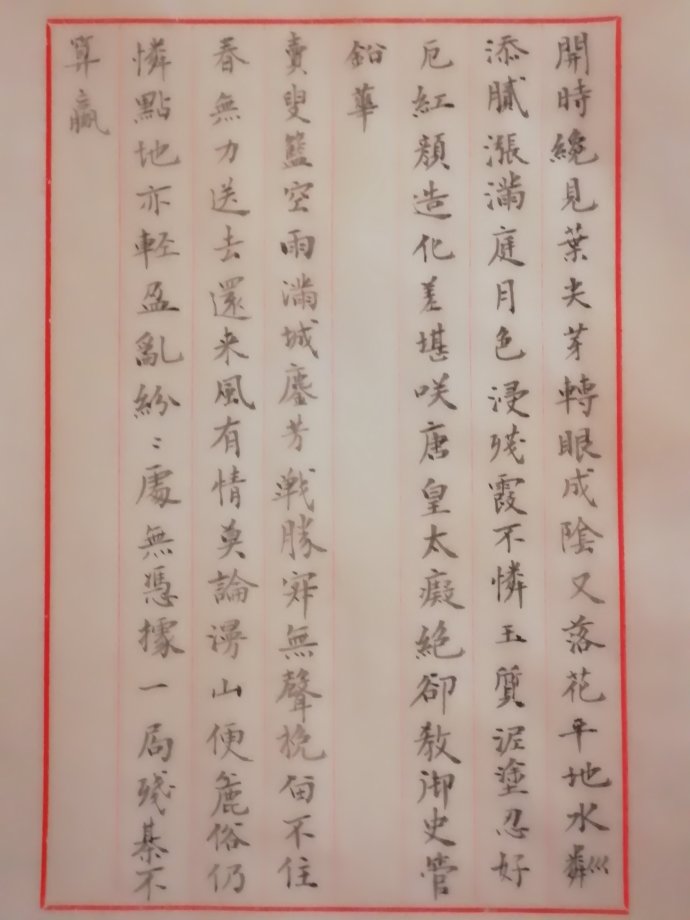 開時纔見葉尖芽轉眼成陰又落花平地水粼粼
添膩漲滿庭月色浸殘霞不憐玉質泥塗忍好
厄紅顏造化差堪咲唐皇太癡絕卻教御史管
鉛華
賣叟籃空雨滿城鏖芳戰勝寂無聲挽留不住
春無力送去還来風有情莫論漫山便麁俗仍
憐點地亦輕盈亂紛〻處無憑據一局殘棊不
算贏